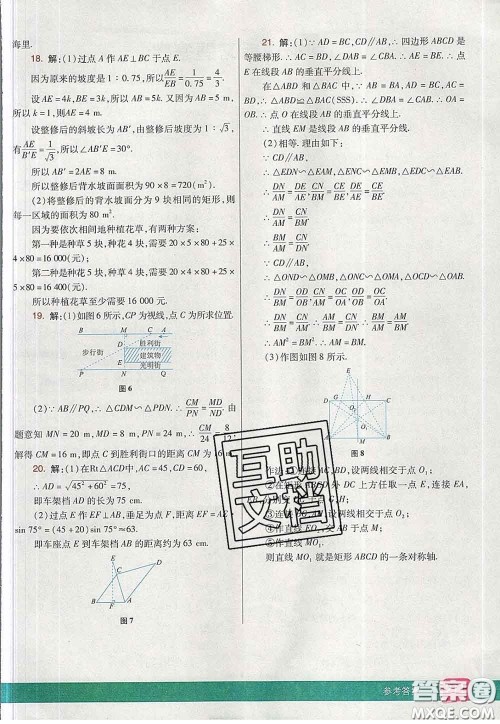 海里.
18. 解:(1)过点 A 作 AE⊥BC 于点 E.
因为原来的坡度是 1∶0.75, 所以 AE/EB = 1/0.75 = 4/3.
设 AE=4k, BE=3k, 所以 AB=5k. 又因为 AB=5 m,
所以 k=1, 所以 AE=4 m.
设整修后的斜坡长为 AB′, 由整修后的坡度为 1∶√3,
有 AE/B′E = 1/√3, 所以 ∠AB′E=30°.
所以整修后背水坡面面积为 90×8=720(m²).
(2)将整修后的背水坡面分为 9 块相同的矩形, 则每
一区域的面积为 80 m².
因为要依次相间地种植花草, 有两种方案:
第一种是种草 5 块, 种花 4 块, 需要 20×5×80+25×
4×80=16 000(元);
第二种是种花 5 块, 种草 4 块, 需要
所以种植花草至少需要 16 000 元.
19. 解:(1)如图 6 所示, CP 为视线, 点 C 为所求位置.
A M C B
胜利街
步行街
建筑物
光明街
P N Q
图 6
(2)∵ AB∥PQ, ∴ △CDM∽△PDN, ∴ CM/PN = MD/ND. 由
题意知 MN=20 m, MD=8 m, PN=24 m, ∴ CM/24 = 8/12.
解得 CM=16 m, 即点 C 到胜利街口的距离 CM 为 16 m.
20. 解:(1)在 Rt△ACD 中, AC=45, CD=60,
∴ AD=√(45²+60²)=75,
即车架档 AD 的长为 75 cm.
(2)过点 E 作 EF⊥AB, 垂足为点 F,
sin 75°=(45+20)sin 75°≈63,
即车座点 E 到车架档 AB 的距离约为 63 cm.
E
C D
B F A
图 7
21. 解:(1)∵ AD=BC, CD∥AB, ∴ 四边形 ABCD 是
等腰梯形. ∴ AC=BD, ∠DAB=∠CBA. ∴ AE=BE. ∴ 点
E 在线段 AB 的垂直平分线上.
∴ △ABD≌△BAC(SSS). ∴ ∠OAB=∠OBA. ∴ OA=
OB. ∴ 点 O 在线段 AB 的垂直平分线上.
∴ 直线 EM 是线段 AB 的垂直平分线.
(2)相等. 理由如下:
∵ CD∥AB,
∴ △EDN∽△EAM, △ECN∽△EBM, △EDC∽△EAB.
∴ DN/AM = DE/AE, CN/BM = CE/BE, DE/AE = CE/BE.
∴ DN/AM = CN/BM.
∴ DN/CN = AM/BM.
∵ CD∥AB,
∴ △OND∽△OMB, △ONC∽△OMA, △OCD∽△OAB.
∴ DN/BM = OD/OB, CN/AM = OC/OA, OC/OA = OD/OB.
∴ DN/BM = CN/AM. ∴ DN/CN = BM/AM. ∴ AM/BM = BM/AM.
∴ AM²=BM². ∴ AM=BM.
(3)作图如图 8 所示.
图 8
AC, BD, 设两线相交于点 O₁;
DC 上方任取一点 E, 连接
AD, 设两线相交于点 O₂;
④作直线 EO₂, 交 AB 于点 M;
⑤作直线 MO₁.
则直线 MO₁ 就是矩形 ABCD 的一条对称轴.
互助
文档
参考答案
答案圈
MXQE.COM